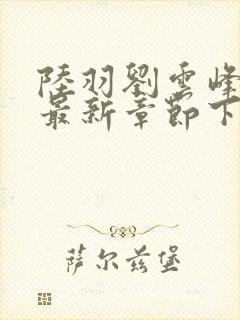 陸羽劉雲峰
最新章節下
萨尔兹堡